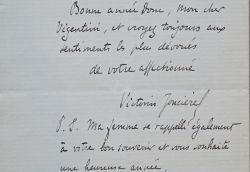 Bonne année donc, mon cher
Vizentini, et croyez toujours aux
sentiments les plus dévoués
de votre affectionné
Victorin Joncières
P. S. Ma femme se rappelle également
à votre bon souvenir et vous souhaite
une heureuse année.